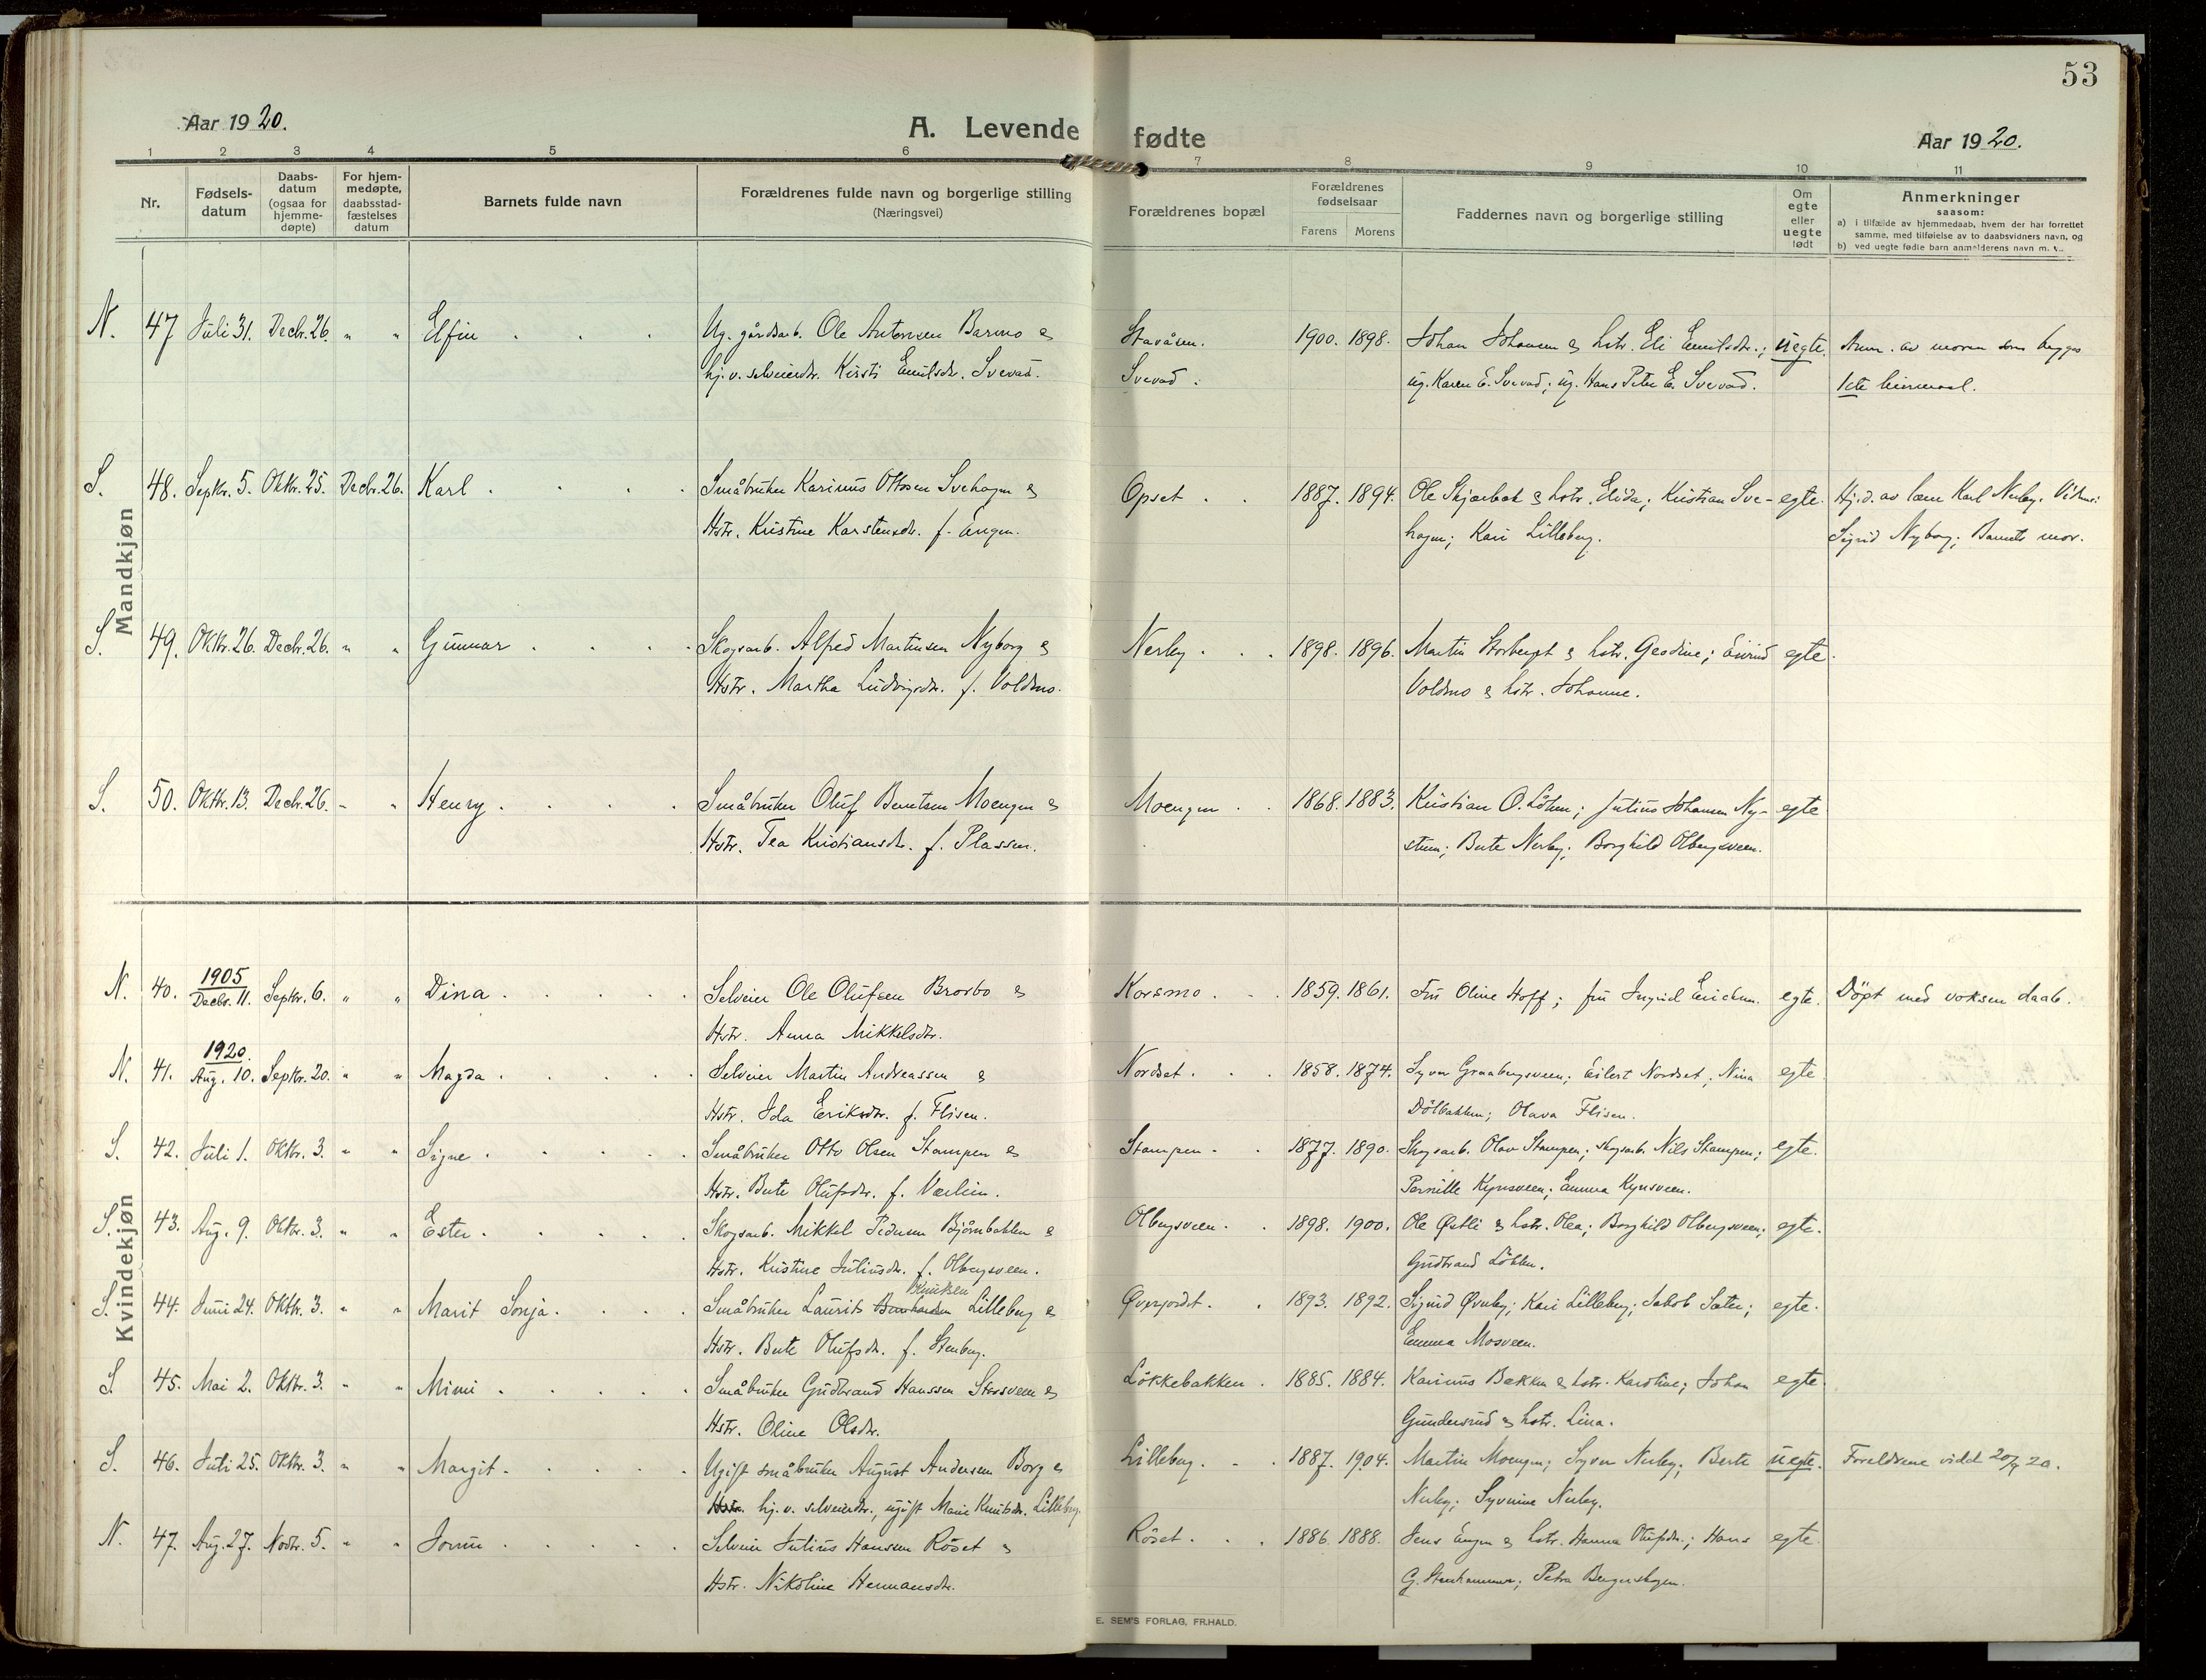 53
Aar 1920.
A. Levende fødte
Aar 1920.
1 2 3 4 5 6 7 8 9 10 11
Nr.
Fødsels-
datum
Daabs-
datum
(ogsaa for
hjemme-
døpte)
For hjem-
medøpte,
daabsstad-
fæstelses
datum
Barnets fulde navn
Forældrenes fulde navn og borgerlige stilling
(Næringsvei)
Forældrenes bopæl
Forældrenes
fødselsaar
Farens Morens
Faddernes navn og borgerlige stilling
Om
egte
eller
uegte
født
Anmerkninger
saasom:
a) i tilfælde av hjemmedaab, hvem der har forrettet
samme, med tilføielse av to daabsvidners navn, og
b) ved uegte fødte barn anmelderens navn m. v.
Mandkjøn
N. 47 Juli 31. Decbr. 26. " " Elfin . . . Ug. gårdsarb. Ole Antonsen Barmo & Stavåsen. 1900. 1898. Johan Johansen & hstr. Eli Emilsdtr.; uegte. Anm. av moren som bygges
hj. v. selveierdtr. Kirsti Emilsdtr. Svevad. Svevad. ug. Karen E. Svevad; ug. Hans Peter E. Svevad. 1ste leiermaal.
S. 48. Septbr. 5. Oktbr. 25. Decbr. 26. Karl . . . . Småbruker Karinus Ottosen Svehagen & Opset . . 1887. 1894. Ole Skjærbæk & hstr. Elida; Kristian Sve- egte. Hj.d. av lærer Karl Nerby. Vidner:
Hstr. Kristine Karstensdtr. f. Engen. hagen; Kari Lilleberg. Sigrid Nyborg; Barnets mor.
S. 49. Oktbr. 26. Decbr. 26. " " Gunnar . . . . Skogsarb. Alfred Martinsen Nyborg & Nerby . . . 1898. 1896. Martin Storberget & hstr. Gesdine; Eivind egte.
Hstr. Martha Ludvigsdtr. f. Voldmo. Voldmo & hstr. Johanne.
S. 50. Oktbr. 13. Decbr. 26. " " Henry . . . . Småbruker Oluf Berntsen Moengen & Moengen . . 1868. 1883. Kristian O. Löken; Julius Johansen Ny- egte
Hstr. Tea Kristiansdtr. f. Plassen. stuen; Berte Nerby; Borghild Olbergsveen.
Kvindekjøn
1905
N. 40. Decbr. 11. Septbr. 6. " " Dina . . . . . Selveier Ole Olufsen Brorbo & Korsmo . . . 1859. 1861. Fru Oline Hoff; fru Ingrid Erichsen. egte. Döpt med voksen daab.
Hstr. Anna Mikkelsdtr.
1920.
N. 41. Aug. 10. Septbr. 20. " " Magda . . . . . Selveier Martin Andreassen & Nordset . . . 1858. 1874. Syver Graabergsveen; Eilert Nordset; Nina egte
Hstr. Ida Eriksdtr. f. Flisen. Dölbakken; Olava Flisen.
S. 42. Juli 1. Oktbr. 3. " " Signe . . . . . Småbruker Otto Olsen Stampen & Stampen . . 1877. 1890. Skogsarb. Olav Stampen; skogsarb. Nils Stampen; egte.
Hstr. Berte Olufsdtr. f.Værlien. Pernille Kynsveen; Emma Kynsveen.
S. 43. Aug. 9. Oktbr. 3. " " Ester . . . . . Skogsarb. Mikkel Pedersen Bjørnbakken & Olbergsveen . . 1898. 1900. Ole Østli & hstr. Olea; Borghild Olbergsveen; egte.
Hstr. Kristine Juliusdtr. f. Olbergsveen. Gudbrand Lökken.
Knutsen
S. 44. Juni 24. Oktbr. 3. " " Marit Sonja . . . . Småbruker Laurits Lilleberg & Øverjordet . . 1893. 1892. Sigurd Øverby; Kari Lilleberg; Jakob Sæter; egte.
Hstr. Berte Olufsdtr. f. Stenberg. Emma Mosveen.
S. 45. Mai 2. Oktbr. 3. " " Mimi . . . . . Småbruker Gudbrand Hanssen Storsveen & Lökkebakken . 1885. 1884. Karinus Bakken & hstr. Karoline; Johan egte.
Hstr. Oline Olsdtr. Gundersrud & hstr. Lina.
S. 46. Juli 25. Oktbr. 3. " " Margit . . . . . Ugift småbruker August Andersen Borg & Lilleberg . . . 1887. 1904. Martin Moengen; Syver Nerby; Berte uegte. Foreldrene viedet 20/9 20.
Hstr. hj. v. selveierdtr., ugift Marie Knutsdtr. Lilleberg. Nerby; Syverine Nerby.
N. 47. Aug. 27. Novbr. 5. " " Jorun . . . . . Selveier Julius Hansen Röset & Röset . . . 1886. 1888. Jens Engen & hstr. Hanna Olufsdtr.; Hans egte.
Hstr. Nikoline Hermansdtr. G. Stenhammer; Petra Bergershagen.
E. SEM'S FORLAG, FR.HALD.